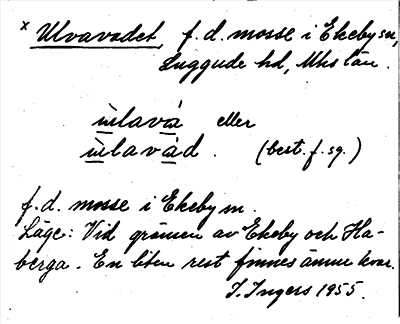 x Ulvavadet, f.d. mosse i Ekeby sn,
Luggude hd, Mhs län.
ùlavá eller
ùlavád. (best. f. sg.)
f.d. mosse i Ekeby sn.
Läge: Vid gränsen av Ekeby och Ha-
berga. En liten rest finnes ännu kvar.
I. Ingers 1955.